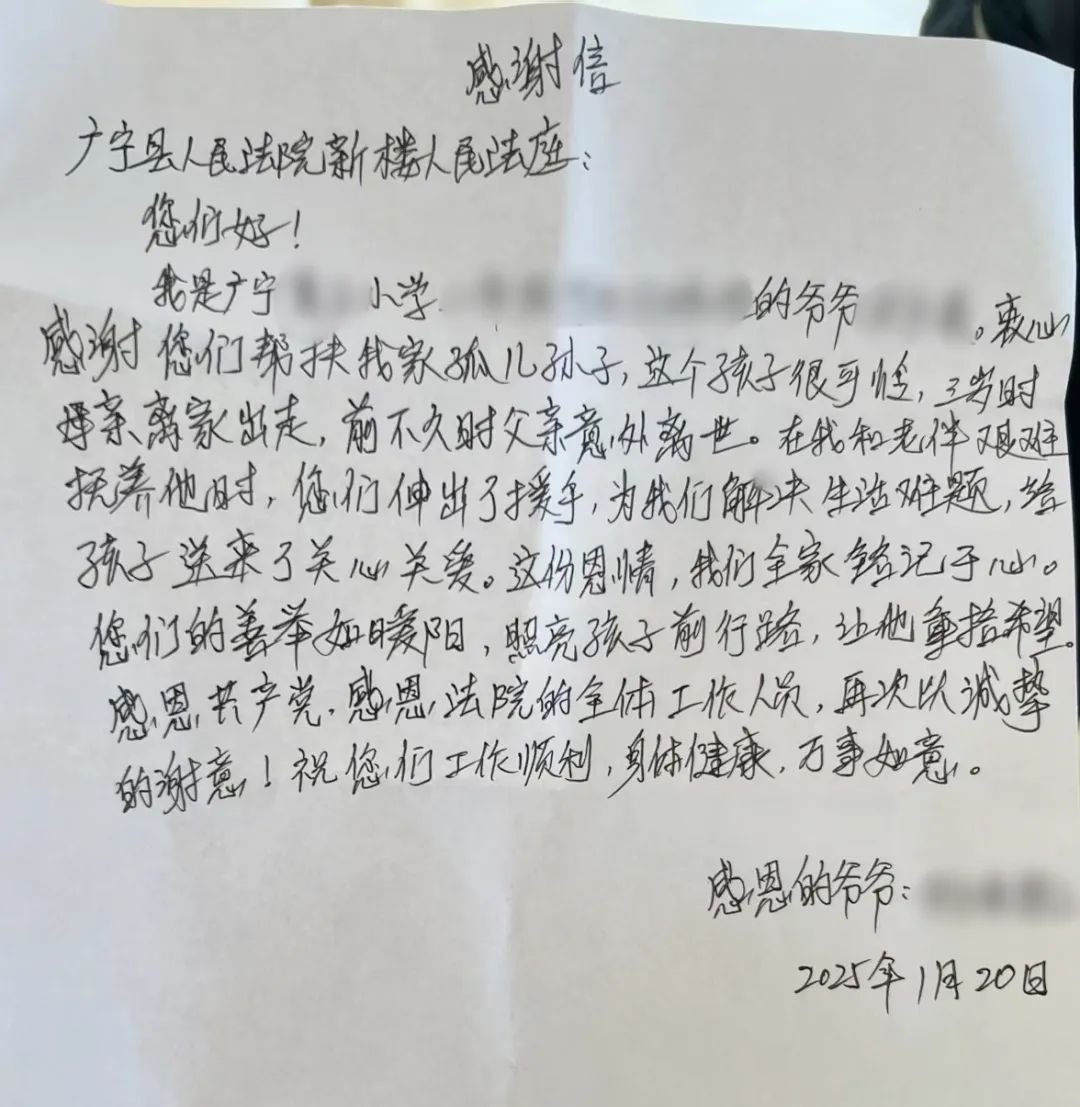 感谢信
广宁县人民法院新楼人民法座：
您们好！
我是广宁 小学 的爷爷 。衷心
感谢您们帮扶我家孤儿孙子，这个孩子很可怜，三岁时
母亲离家出走，前不久时父亲意外离世。在我和老伴艰难
抚养他时，您们伸出了援手，为我们解决生活难题，给
孩子送来了关心关爱。这份恩情，我们全家铭记于心。
您们的善举如暖阳，照亮孩子前行路，让他重拾希望。
感恩共产党，感恩法院的全体工作人员，再次以诚挚
的谢意！祝您们工作顺利，身体健康，万事如意。
感恩的爷爷：
2025年1月20日